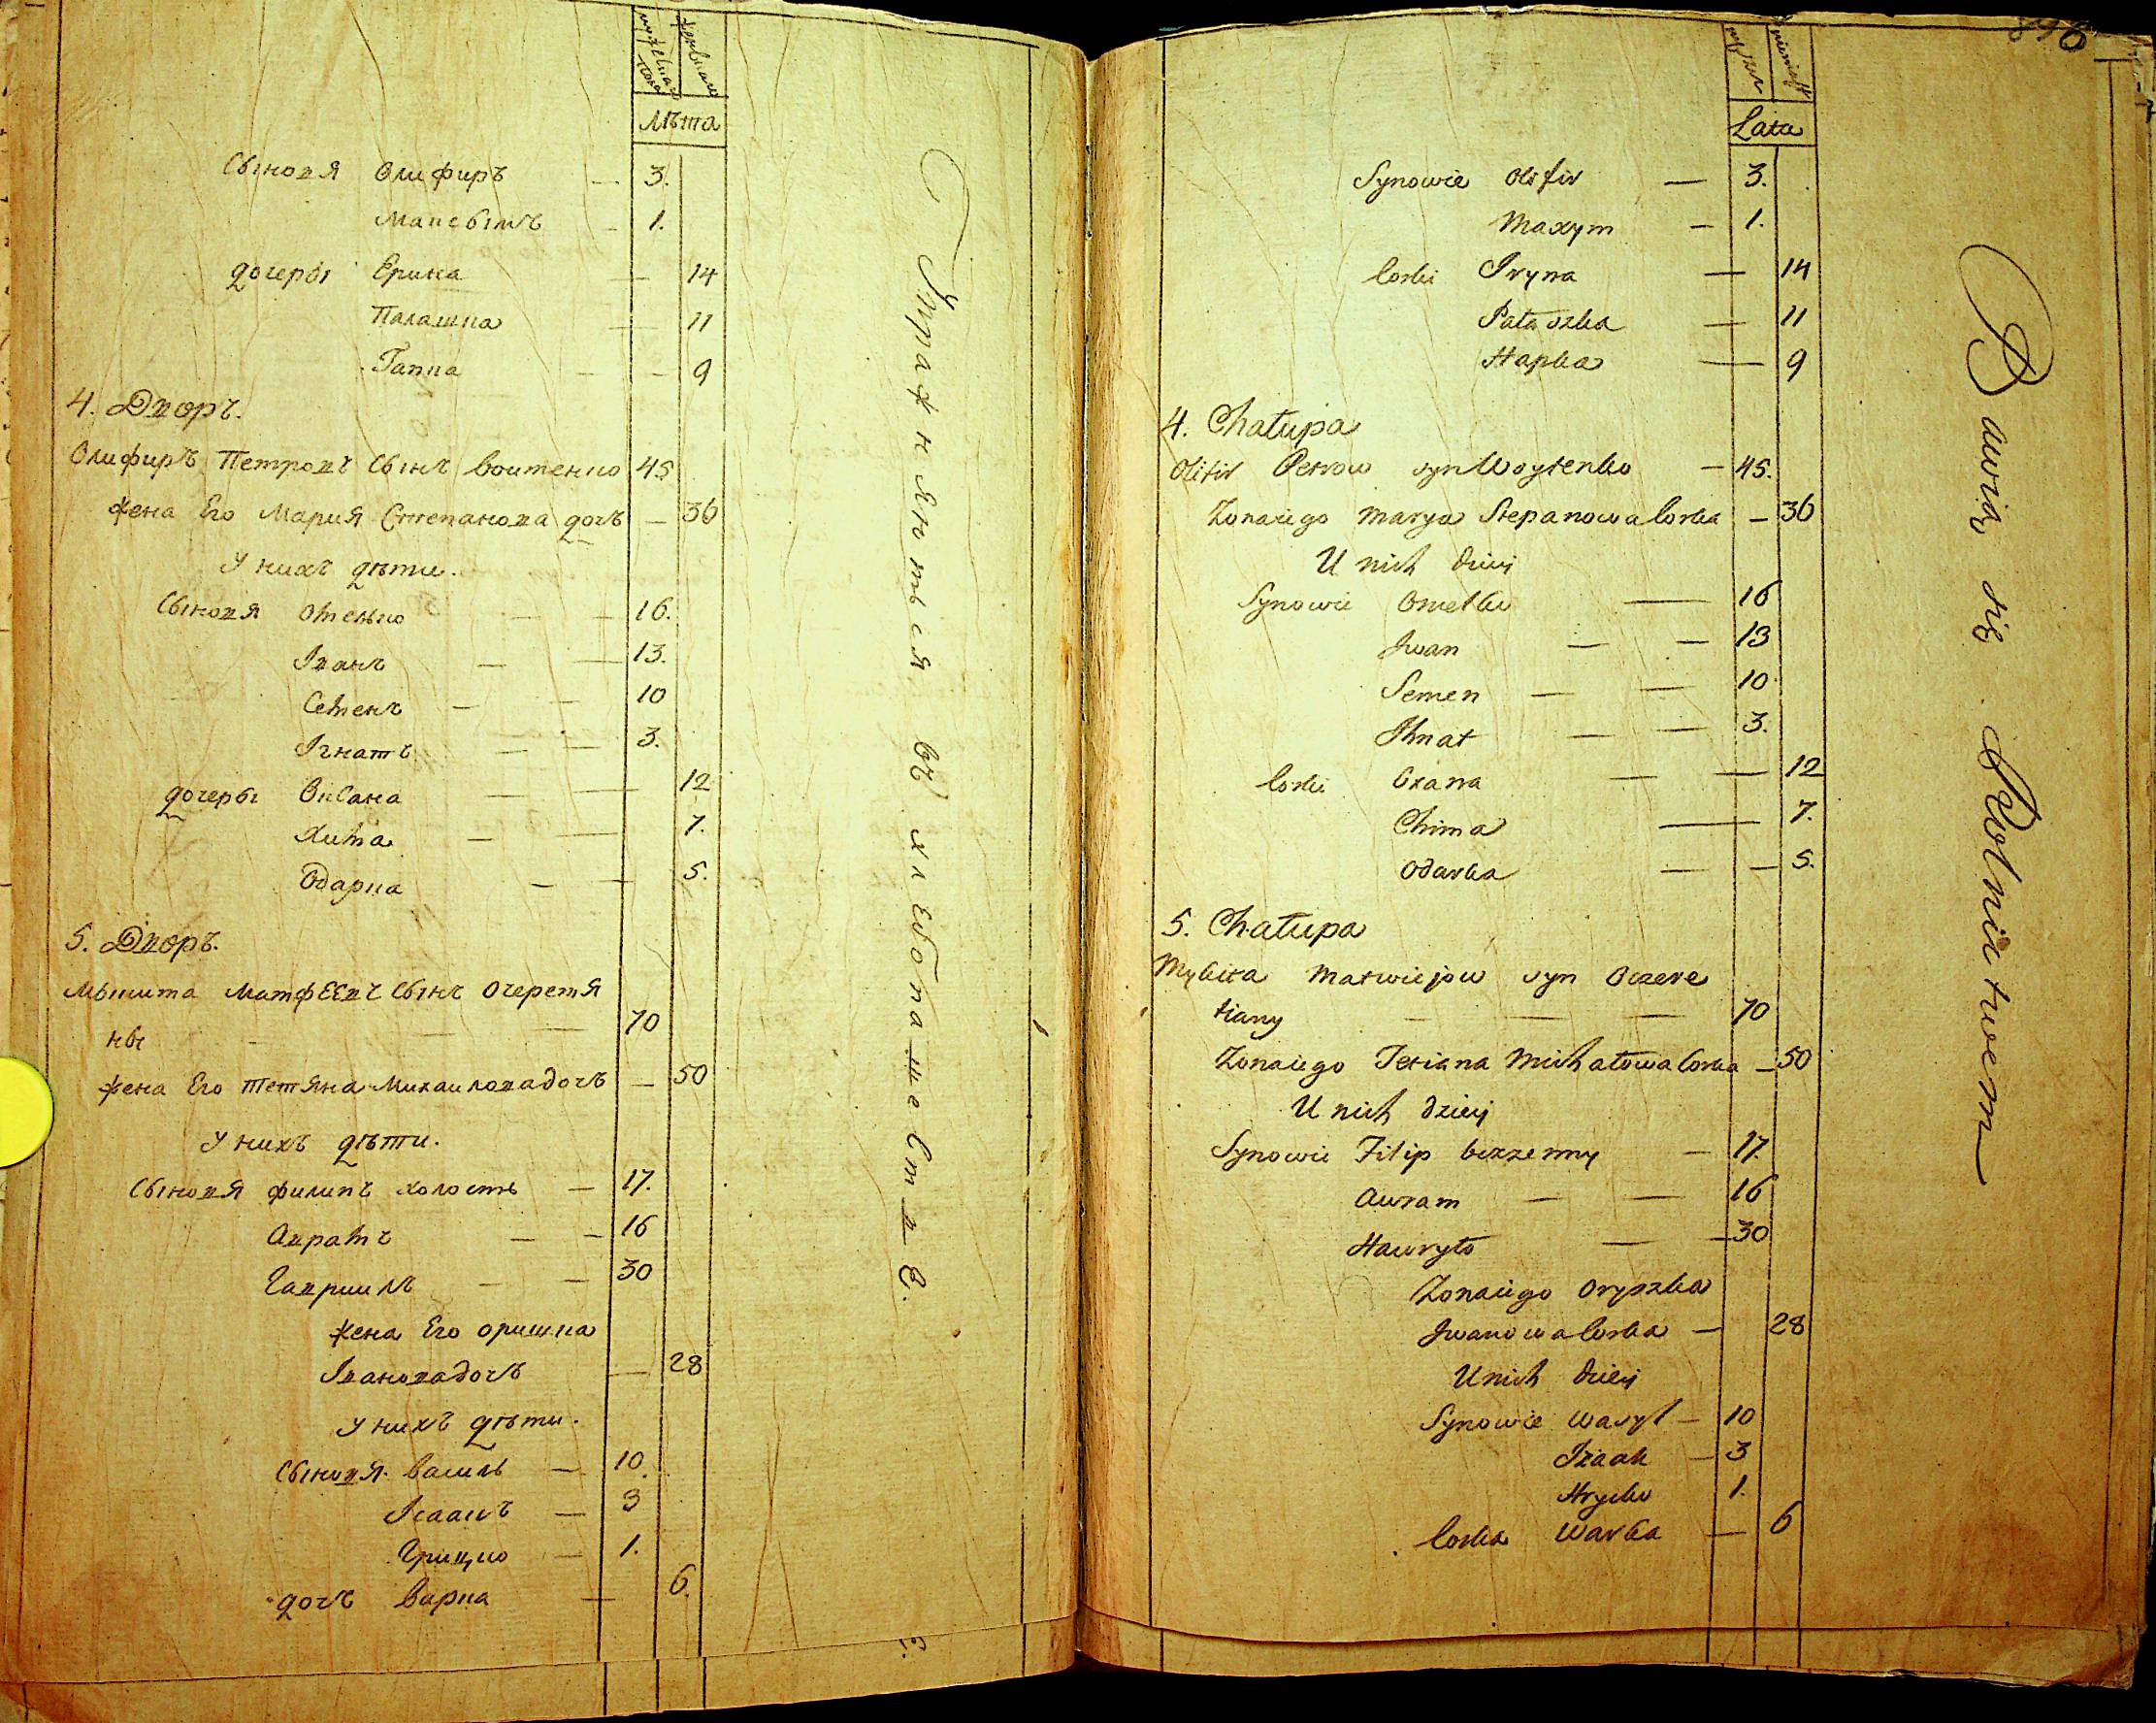 мужеска пола
женска
Лѣта
Сыновя Олифиръ — 3.
Максымъ — 1.
дочеры Ерина — 14
Палашка — 11
Гапка — 9
4. Дворъ.
Олифиръ Петровъ сынъ Воитенко 45
жена Его Мария Степанова дочъ — 36
У нихъ дѣти.
Сыновя Омелько — 16.
Іванъ — — 13.
Семенъ — — 10
Ігнатъ — — 3.
дочеры Оксана — — 12
Хима — — 7.
Одарка — — 5.
5. Дворъ.
Мыкита Матфеевъ сынъ Очеретя
ны — — — 70
жена Его Тетяна Михаиловадочъ — 50
У нихъ дѣти.
Сыновя Филипъ холостъ — 17.
Аврамъ — — 16
Гавриилъ — — 30
жена Его Оришка
Івановадочъ — 28
У нихъ дѣти.
Сыновя Василь — 10.
Ісаакъ — 3
Грицко — 1.
дочъ Варка — 6.
Упражняються въ хлебопашествѣ.
896
Lata
Synowie Olifir — 3.
Maxym — 1.
Corki Iryna — 14
Pałaszka — 11
Hapka — 9
4. Chałupa
Olifir Petrow syn Woytenko — 45.
Zona iego Marya Stepanowa Corka — 36
U nich dzieij
Synowie Omelko — 16
Jwan — — 13
Semen — — 10
Jhnat — — 3.
Corki Oxana — — 12
Chima — 7.
Odarka — — 5.
5. Chałupa
Mykita Matwiejow syn Oczere
tiany — — — 70
Zona iego Tetiana Michałowa Corka — 50
U nich dzieij
Synowie Filip bezzenny — 17.
Awram — — 16
Hawryło — — 30
Zona iego Oryszka
Jwanowa Corka — 28
U nich dzieij
Synowie Wasyl — 10
Izaak — 3
Hryćko 1.
Corka Warka — 6
Bawią się Rolnictwem